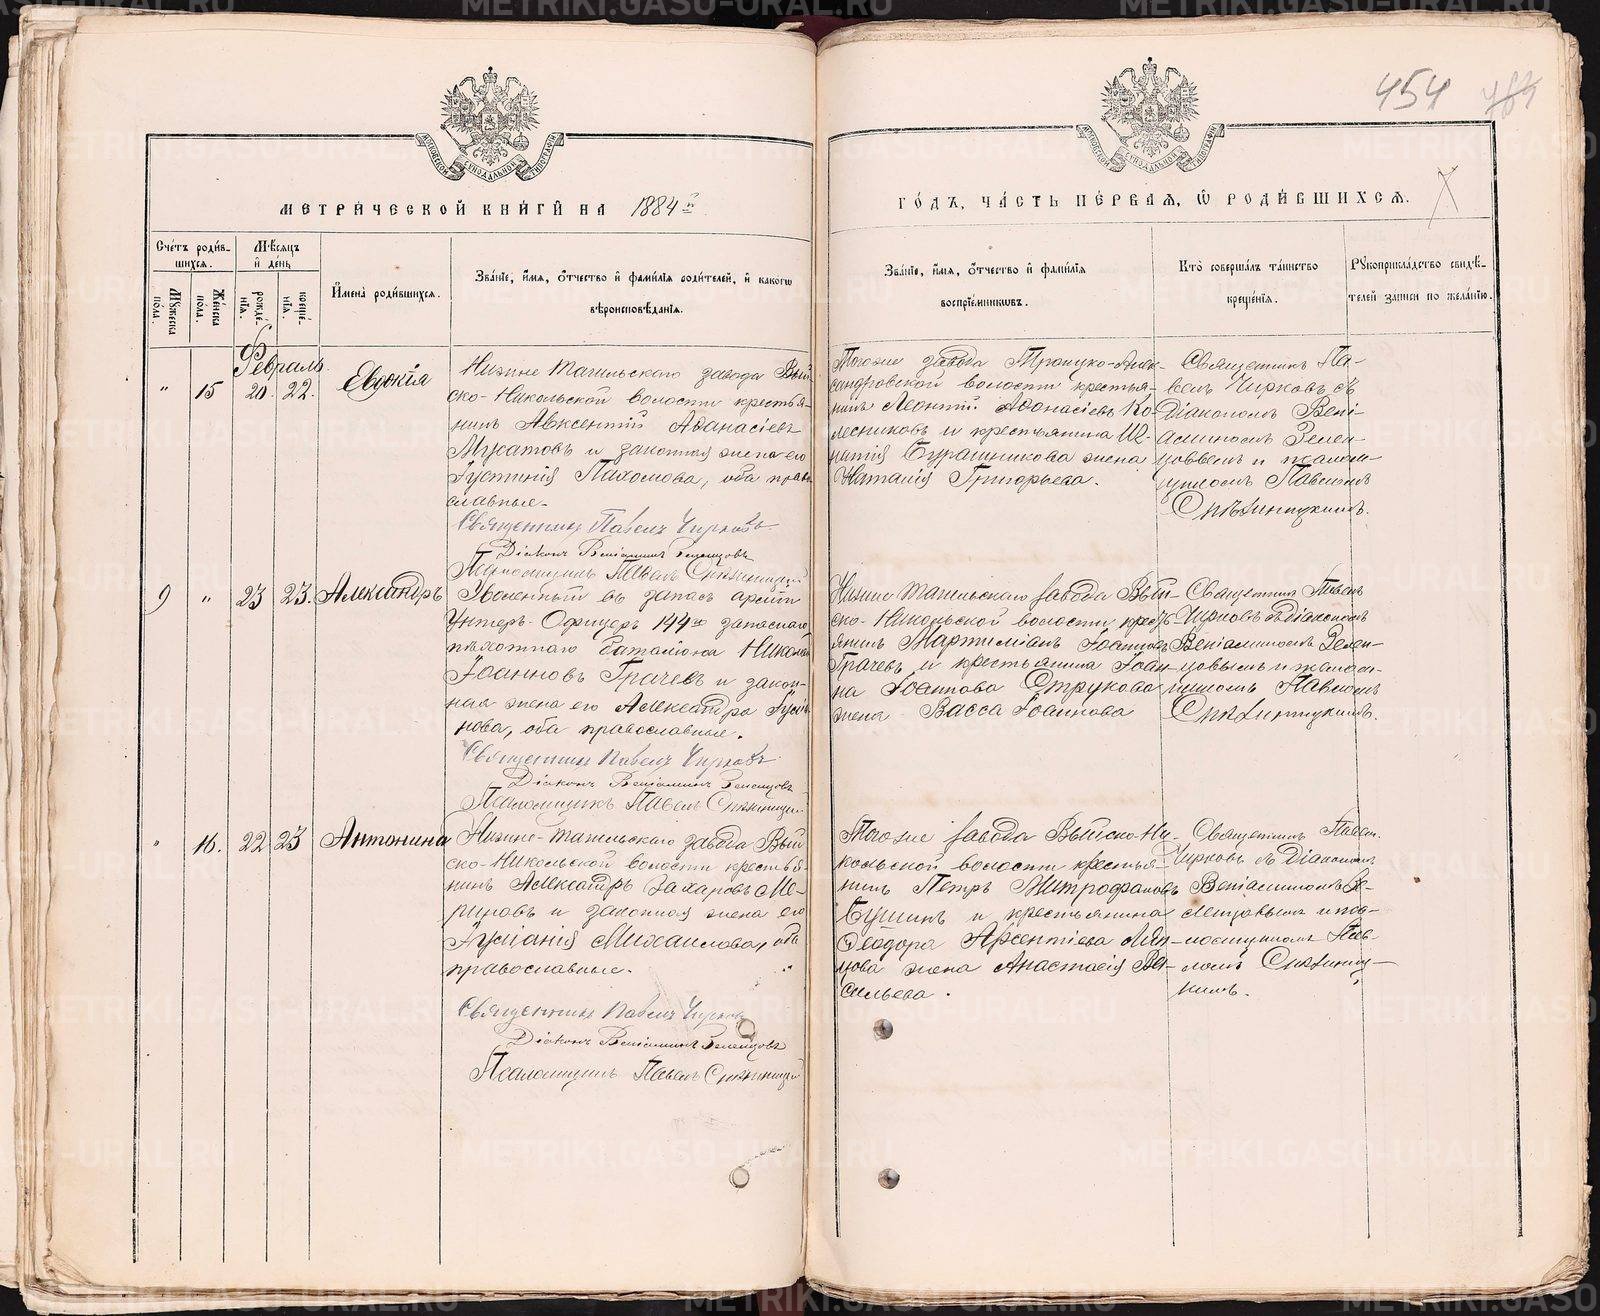 454
МОСКОВСКОЙ СѴНОДАЛЬНОЙ ТИПОГРАФІИ
МОСКОВСКОЙ СѴНОДАЛЬНОЙ ТИПОГРАФІИ
МЕТРИЧЕСКОЙ КНИГИ НА 1884 й
ГОДЪ, ЧАСТЬ ПЕРВАЯ, Ѡ РОДИВШИХСЯ.
Счетъ родив-
шихся.
Мѣсяцъ
и день
Мужеска
пола.
Женска
пола.
рожде-
нія.
креще-
нія.
Имена родившихся.
Званіе, имя, отчество и фамилія родителей, и какого
вѣроисповѣданія.
Званіе, имя, отчество и фамилія
воспріемниковъ.
Кто совершалъ таинство
крещенія.
Рукоприкладство свидѣ-
телей записи по желанію.
Февраль
" 15 20. 22. Евдокія
Нижне Тагильскаго завода Вый-
ско-Никольской волости крестья-
нинъ Авксентій Аѳанасіевъ
Мухатовъ и законная жена его
Іустинія Пахомова, оба право-
славные.
Священникъ Павелъ Чирковъ
Діаконъ Веніаминъ Зеленцовъ
Псаломщикъ Павелъ
Тогоже завода Троицко-Алек-
сандровской волости крестья-
нинъ Леонтій Аѳонасіевъ Ко-
лесниковъ и крестьянина Иг-
натія Бурашникова жена
Наталія Григорьева.
Священникъ Па-
велъ Чирковъ съ
діакономъ Вені-
аминомъ Зелен-
цовымъ и псалом-
щикомъ Павломъ
9 " 23 23. Александръ
Уволенный въ запасъ арміи
Унтеръ-Офицеръ 144го запаснаго
пѣхотнаго баталіона Николай
Іоанновъ Грачевъ и закон-
ная жена его Александра Іусти-
нова, оба православные.
Священникъ Павелъ Чирковъ
Діаконъ Веніаминъ Зеленцовъ
Псаломщикъ Павелъ
Нижне Тагильскаго завода Вый-
ско-Никольской волости кресть-
янинъ Мартиміанъ Іоанновъ
Грачевъ и крестьянина Іоан-
на Іоаннова Струкова
жена Васса Іоаннова
Священникъ Павелъ
Чирковъ съ діакономъ
Веніаминомъ Зелен-
цовымъ и псалом-
щикомъ Павломъ
" 16. 22 23 Антонина
Нижне-Тагильскаго завода Вый-
ско-Никольской волости крестья-
нинъ Александръ Захаровъ Ме-
риновъ и законная жена его
Іуліанія Михаилова, оба
православные.
Священникъ Павелъ Чирковъ
Діаконъ Веніаминъ Зеленцовъ
Псаломщикъ Павелъ
Тогоже завода Выйско-Ни-
кольской волости крестья-
нинъ Петръ Митрофановъ
Бушинъ и крестьянина
Ѳеодора Арсентіева
жена Анастасія Ва-
сильева.
Священникъ Павелъ
Чирковъ съ діакономъ
Веніаминомъ Зе-
ленцовымъ и пса-
ломщикомъ Пав-
ломъ
METRIKI.GASO-URAL.RU